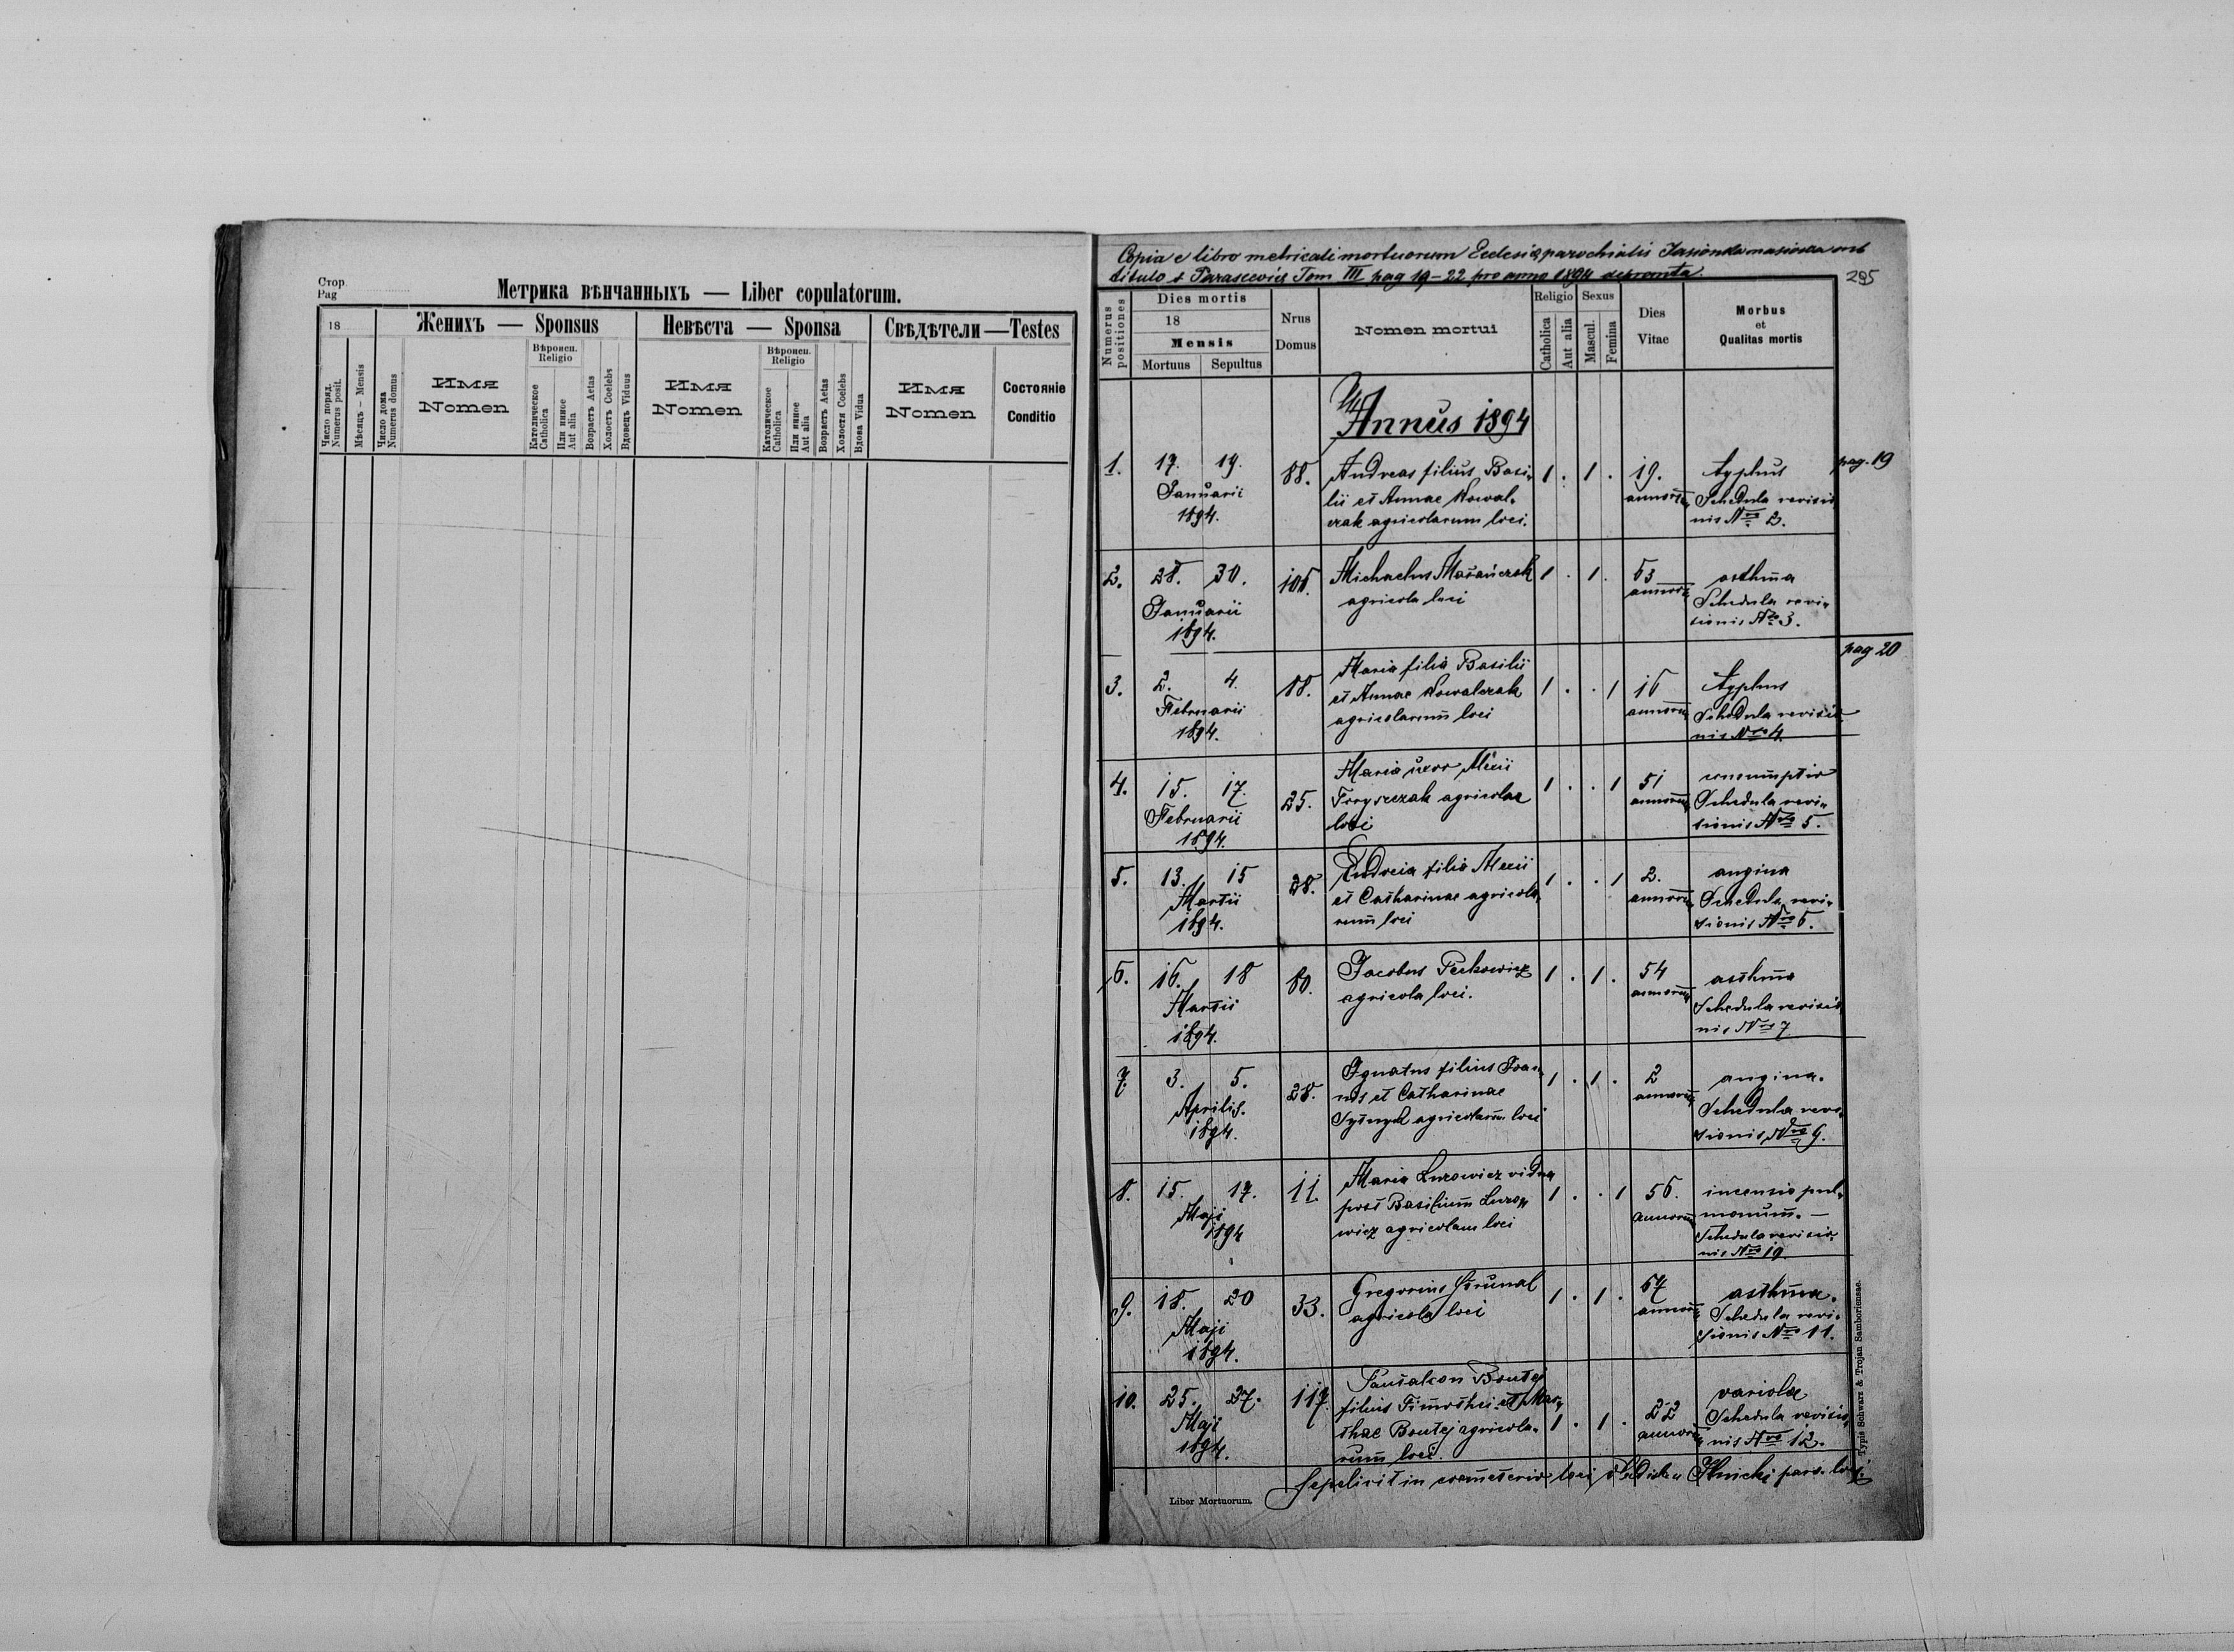 Стор.
Pag
Метрика вѣнчанныхъ — Liber copulatorum.
18
Женихъ — Sponsus
Невѣста — Sponsa
Свѣдѣтели — Testes
Число поряд.
Numerus posit.
Мѣсяцъ – Mensis
Число дома
Numerus domus
Имя
Nomen
Вѣроисп.
Religio
Католическое
Catholica
Или инное
Aut alia
Возрастъ Aetas
Холостъ Coelebs
Вдовецъ Viduus
Имя
Nomen
Вѣроисп.
Religio
Католическое
Catholica
Или инное
Aut alia
Возрастъ Aetas
Холостя Coelebs
Вдова Vidua
Имя
Nomen
Состояніе
Conditio
Copia e libro metricali mortuorum Ecclesiae parochialis
titulo s Parascevies Tom III pag 19-22 pro anno 1894 depromta.
295
Numerus
positiones
Dies mortis
18
Mensis
Mortuus Sepultus
Nrus
Domus
Nomen mortui
Religio
Catholica
Aut alia
Sexus
Mascul.
Femina
Dies
Vitae
Morbus
et
Qualitas mortis
Annus 1894
1. 17. 19. Januarii 1894. 88.
Andreas filius Basi-
lii et Annae Nowal-
czak agricolarum loci.
1 . 1 . 19. annorum
typhus
Schedula revisio
nis Nro 2.
pag. 19
2. 28. 30. Januarii 1894. 106.
Michaelus
agricola loci
1 . 1 . 63 annorum
asthma
Schedula revi-
sionis Nro 3.
pag 20
3. 2. 4. Februarii 1894. 88.
Maria filia Basilii
et Annae Nowalczak
agricolarum loci
1 . . 1 16 annorum
typhus
Schedula revisio
nis Nro 4.
4. 15. 17. Februarii 1894. 25.
Maria uxor Alexii
agricolae
loci
1 . . 1 51 annorum
consumptio
Schedula revi-
sionis Nro 5.
5. 13. 15 Martii 1894. 28.
Eudocia filia Alexii
et Catharinae agricola
rum loci
1 . . 1 2. annorum
angina
Schedula revi-
sionis Nro 6.
6. 16. 18 Martii 1894. 80.
Jacobus Peckowicz
agricola loci.
1 . 1 . 54 annorum
asthma
Schedula revisio
nis Nro 7
7. 3. 5. Aprilis. 1894. 28.
Ignatus filius Joan-
nis et Catharinae
agricolarum loci
1 . 1 . 2 annorum
angina.
Schedula revi-
sionis Nro 9.
8. 15. 17. Maji 1894 11
Maria Lurowicz vidua
post Basilium Luro-
wicz agricolam loci
1 . . 1 56. annorum
incensio pul-
monum. —
Schedula revisio-
nis Nro 10
9. 18. 20 Maji 1894. 33.
Gregorius
agricola loci
1 . 1 . 67 annorum
asthma.
Schedula revi-
sionis Nro 11.
10. 25. 27. Maji 1894. 117.
Pantaleon Boutej
filius Timothei et Mar-
thae Boutej agricola-
rum loci.
1 . 1 . 22 annorum
variola
Schedula revisio
nis Nro 12.
Sepelivit in coemeterio loci Ilnicki par. loci
Liber Mortuorum.
Typis Schwarz & Trojan Samboriensae.